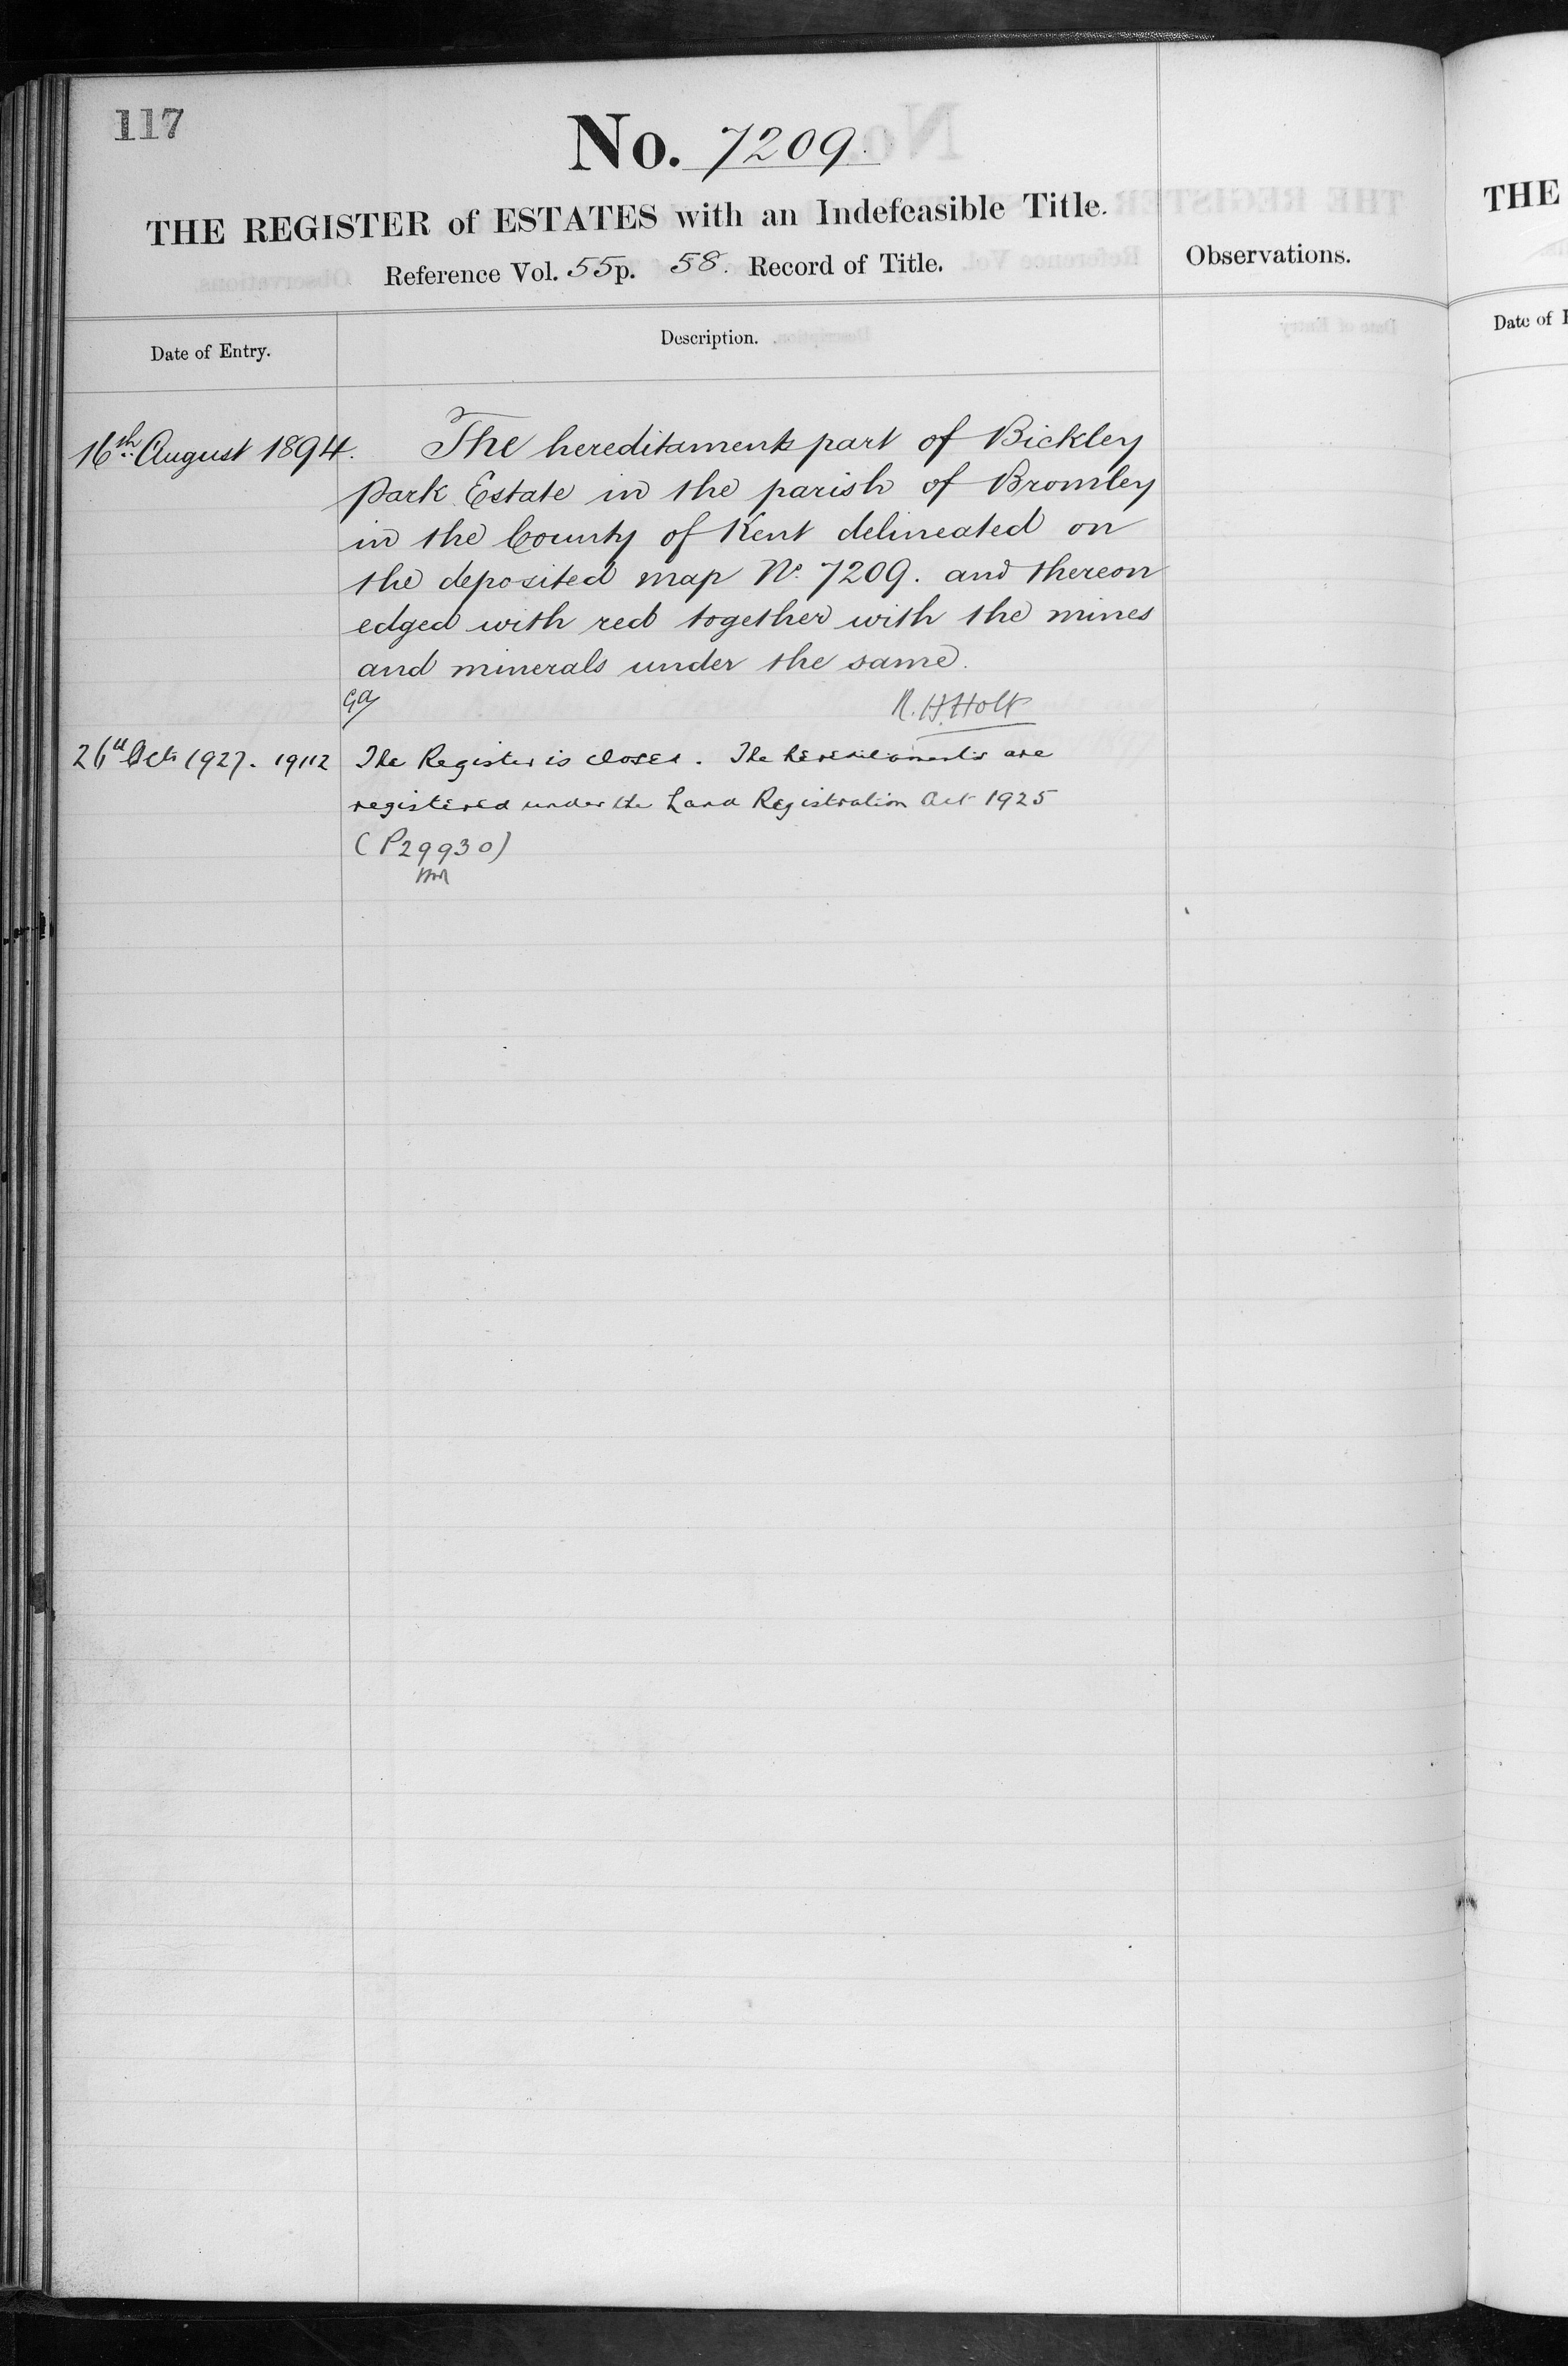 117
No. 7209.
THE REGISTER of ESTATES with an Indefeasible Title.
Reference Vol. 55 p. 58. Record of Title.
Observations.
Date of Entry.
Description.
16th August 1894.
The hereditaments part of Bickley
Park Estate in the parish of Bromley
in the County of Kent delineated on
the deposited map No. 7209. and thereon
edged with red together with the mines
and minerals under the same.
R. H. Holt
26th Oct 1927. 19112
The Register is closed. The hereditaments are
registered under the Land Registration Act 1925
(P29930)
THE
Date of